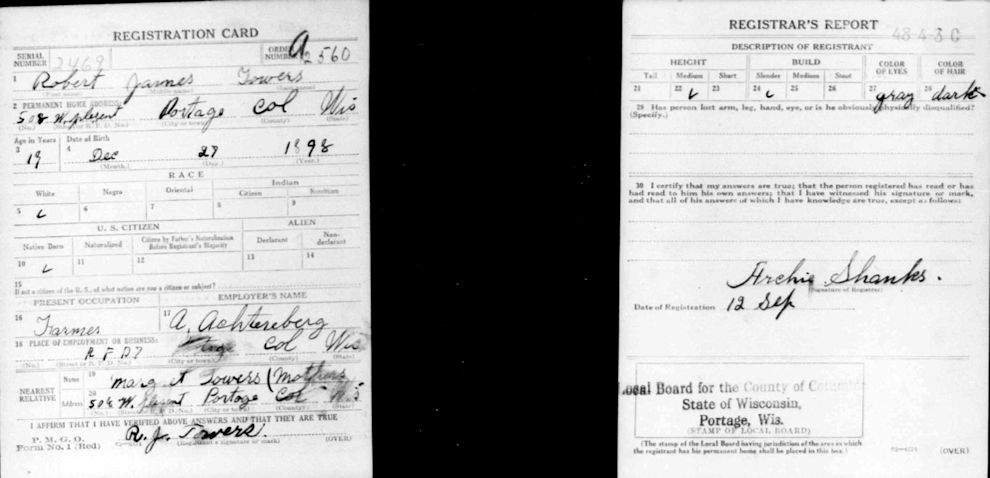 REGISTRATION CARD
SERIAL NUMBER 2469 ORDER NUMBER A 2560
1 Robert James Towers
(First name) (Middle name) (Last name)
2 PERMANENT HOME ADDRESS:
508 W. plesent Portage Col Wis
(No.) (Street or R. F. D. No.) (City or town) (County) (State)
Age in Years Date of Birth
3 19 4 Dec 27 1898
(Month.) (Day.) (Year.)
RACE
White Negro Oriental Indian
Citizen Noncitizen
5 ✓ 6 7 8 9
U. S. CITIZEN ALIEN
Native Born Naturalized Citizen by Father's Naturalization Before Registrant's Majority Declarant Non-declarant
10 ✓ 11 12 13 14
15
If not a citizen of the U. S., of what nation are you a citizen or subject?
PRESENT OCCUPATION EMPLOYER'S NAME
16 Farmer 17 A. Achtereberg
18 PLACE OF EMPLOYMENT OR BUSINESS:
R F D 7 Col Wis
(No.) (Street or R. F. D. No.) (City or town) (County) (State)
NEAREST RELATIVE Name 19 Marg et Towers (Mother)
Address 20 508 W. plesent Portage Col Wis
(No.) (Street or R. F. D. No.) (City or town) (County) (State)
I AFFIRM THAT I HAVE VERIFIED ABOVE ANSWERS AND THAT THEY ARE TRUE
P. M. G. O.
Form No. 1 (Red) R. J. Towers.
(Registrant's signature or mark) (OVER)
REGISTRAR'S REPORT
48-4-3 C
DESCRIPTION OF REGISTRANT
HEIGHT BUILD COLOR OF EYES COLOR OF HAIR
Tall Medium Short Slender Medium Stout
21 22 ✓ 23 24 ✓ 25 26 27 gray 28 dark
29 Has person lost arm, leg, hand, eye, or is he obviously physically disqualified?
(Specify.)
30 I certify that my answers are true; that the person registered has read or has
had read to him his own answers; that I have witnessed his signature or mark,
and that all of his answers of which I have knowledge are true, except as follows:
Archie Shanks.
(Signature of Registrar)
Date of Registration 12 Sep
Local Board for the County of Columbia
State of Wisconsin,
Portage, Wis.
(STAMP OF LOCAL BOARD)
(The stamp of the Local Board having jurisdiction of the area in which
the registrant has his permanent home shall be placed in this box.) (OVER)